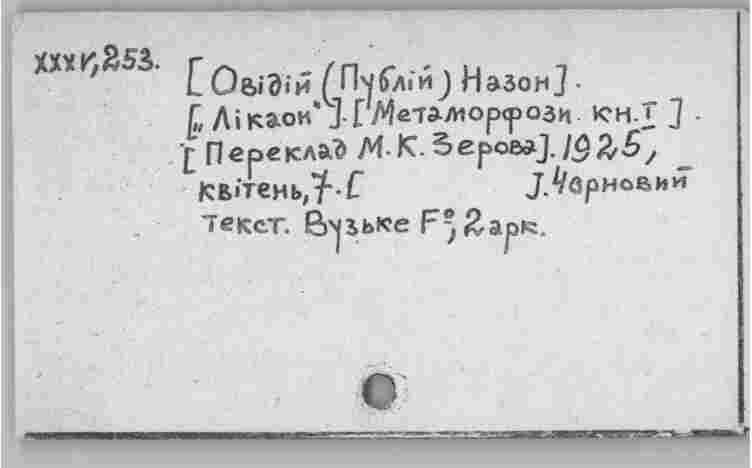 XXXV,253.
[Овідій (Публій) Назон].
[„Лікаон"].[Метаморфози. кн.І].
[Переклад М.К.Зерова].1925,
квітень,7.[ ].Чорновий
текст. Вузьке F°,2арк.